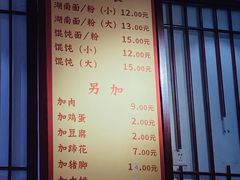 湖南面/粉（小）12.00元
湖南面/粉（大）13.00元
馄饨面/粉 15.00元
馄饨（小） 12.00元
馄饨（大） 15.00元
另加
加肉 9.00元
加鸡蛋 2.00元
加豆腐 2.00元
加蹄花 7.00元
加猪脚 14.00元